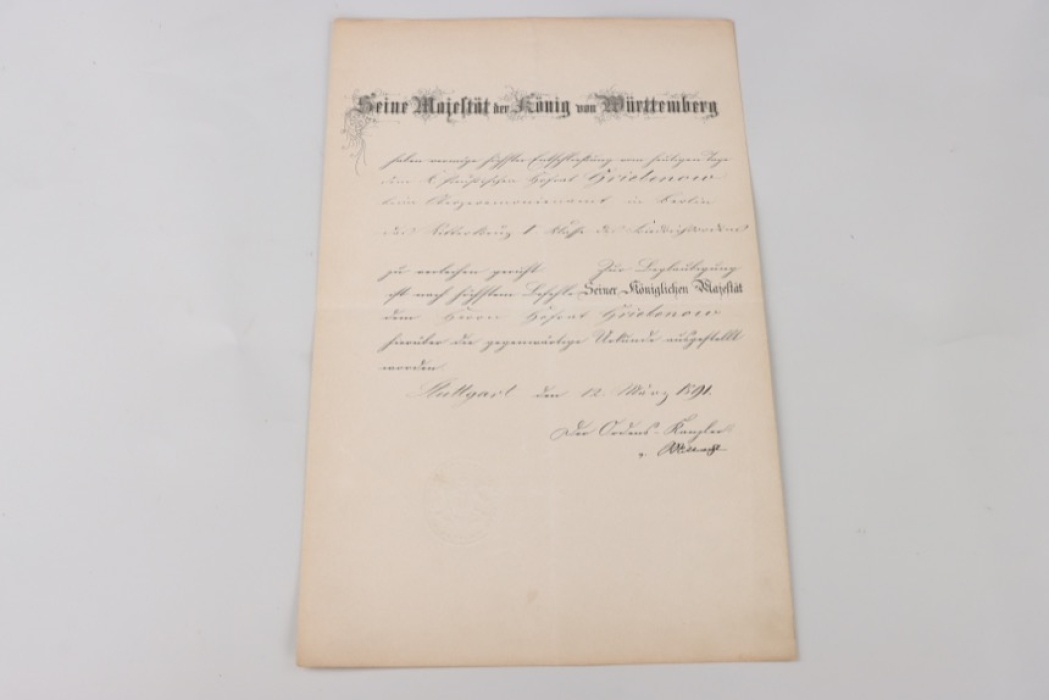 Seine Majestät der König von Württemberg
haben vermöge höchster Entschließung vom heutigen Tage
dem K. Preußischen Hofrat Griebenow
beim Oberzeremonienamt in Berlin
das Ritterkreuz 1. Klasse des Friedrichsordens
zu verleihen geruht. Zur Beglaubigung
ist nach höchstem Befehle Seiner Königlichen Majestät
dem Herrn Hofrat Griebenow
hierüber die gegenwärtige Urkunde ausgestellt
worden.
Stuttgart den 12. März 1891.
Der Ordens-Kanzler